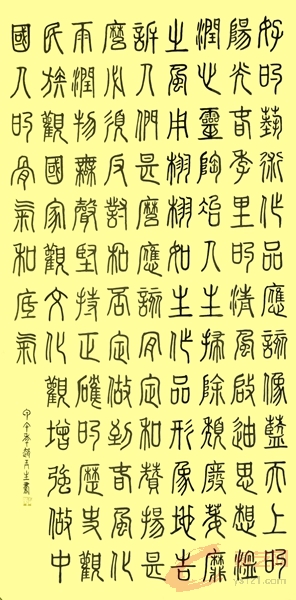 好的藝術作品應該像藍天上的
陽光春季里的清風啟迪思想溫
潤心靈陶冶人生掃除頹廢萎靡
之風用栩栩如生作品形象地告
訴人們甚麼應該肯定和贊揚甚
麼必須反對和否定做到春風化
雨潤物無聲堅持正確的歷史觀
民族觀國家觀文化觀增強做中
國人的骨氣和底氣
甲午